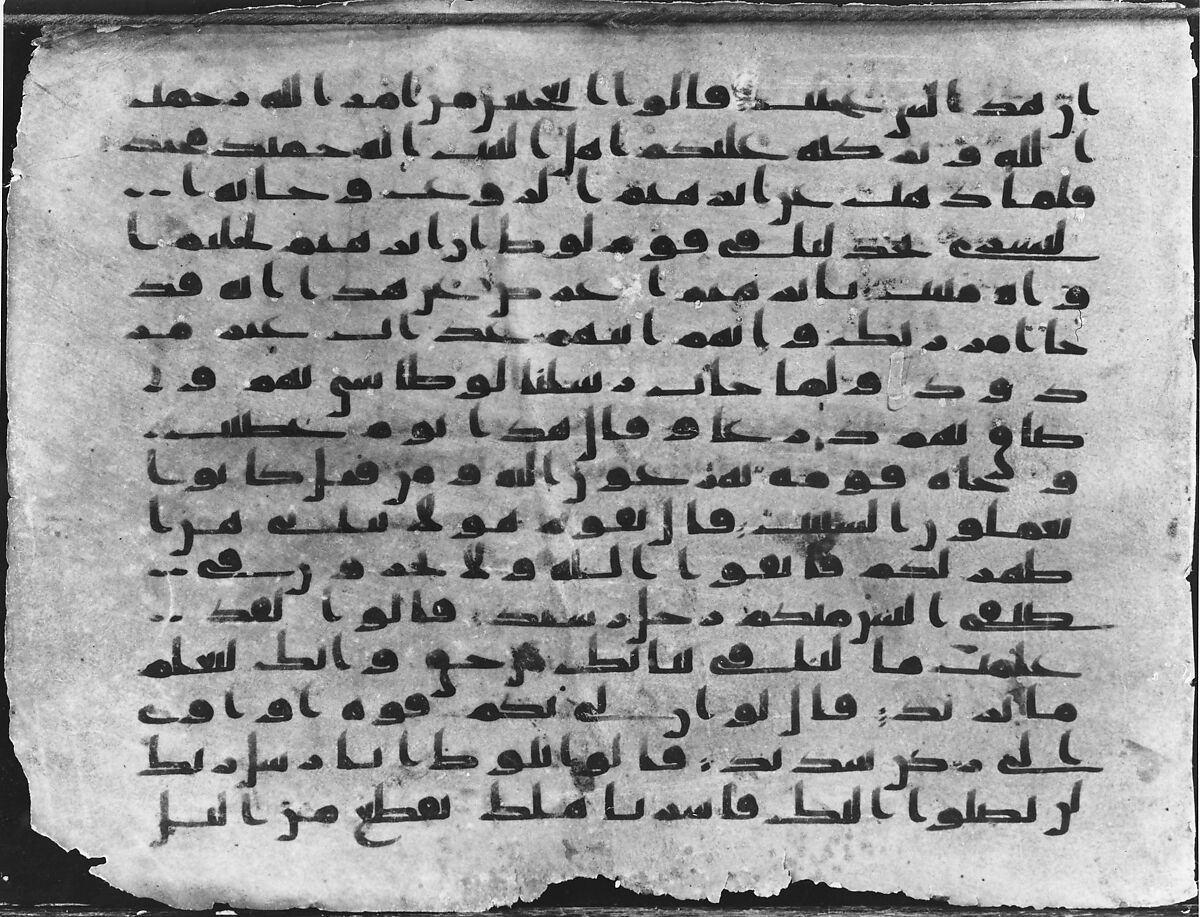 ان هذا لشى عجيب قالوا اتعجبين من امر الله رحمت
الله وبركته عليكم اهل البيت انه حميد مجيد
فلما ذهب عن ابرهيم الروع وجاته ا
لبشرى يجدلنا فى قوم لوط ان ابرهيم لحليم ا
وه منيب يابرهيم اعرض عن هذا انه قد
جا امر ربك وانهم اتيهم عذاب غير مر
دود ولما جات رسلنا لوطا سى بهم و
ضاق بهم ذرعا وقال هذا يوم عصيب
وجاه قومه يهرعون اليه ومن قبل كانوا
يعملون السيت قال يقوم هولا بنتى هن ا
طهر لكم فاتقوا الله ولا تخزون فى
ضيفى اليس منكم رجل رشيد قالوا لقد
علمت ما لنا فى بناتك من حق وانك لتعلم
ما نريد قال لو ان لى بكم قوه او اوى
الى ركن شديد قالوا يلوط انا رسل ربك
لن يصلوا اليك فاسر باهلك بقطع من اليل